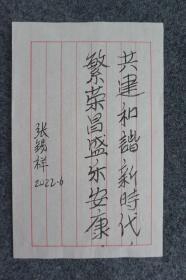 共建和諧新時代，
繁荣昌盛乐安康．
张錫祥
2022.6